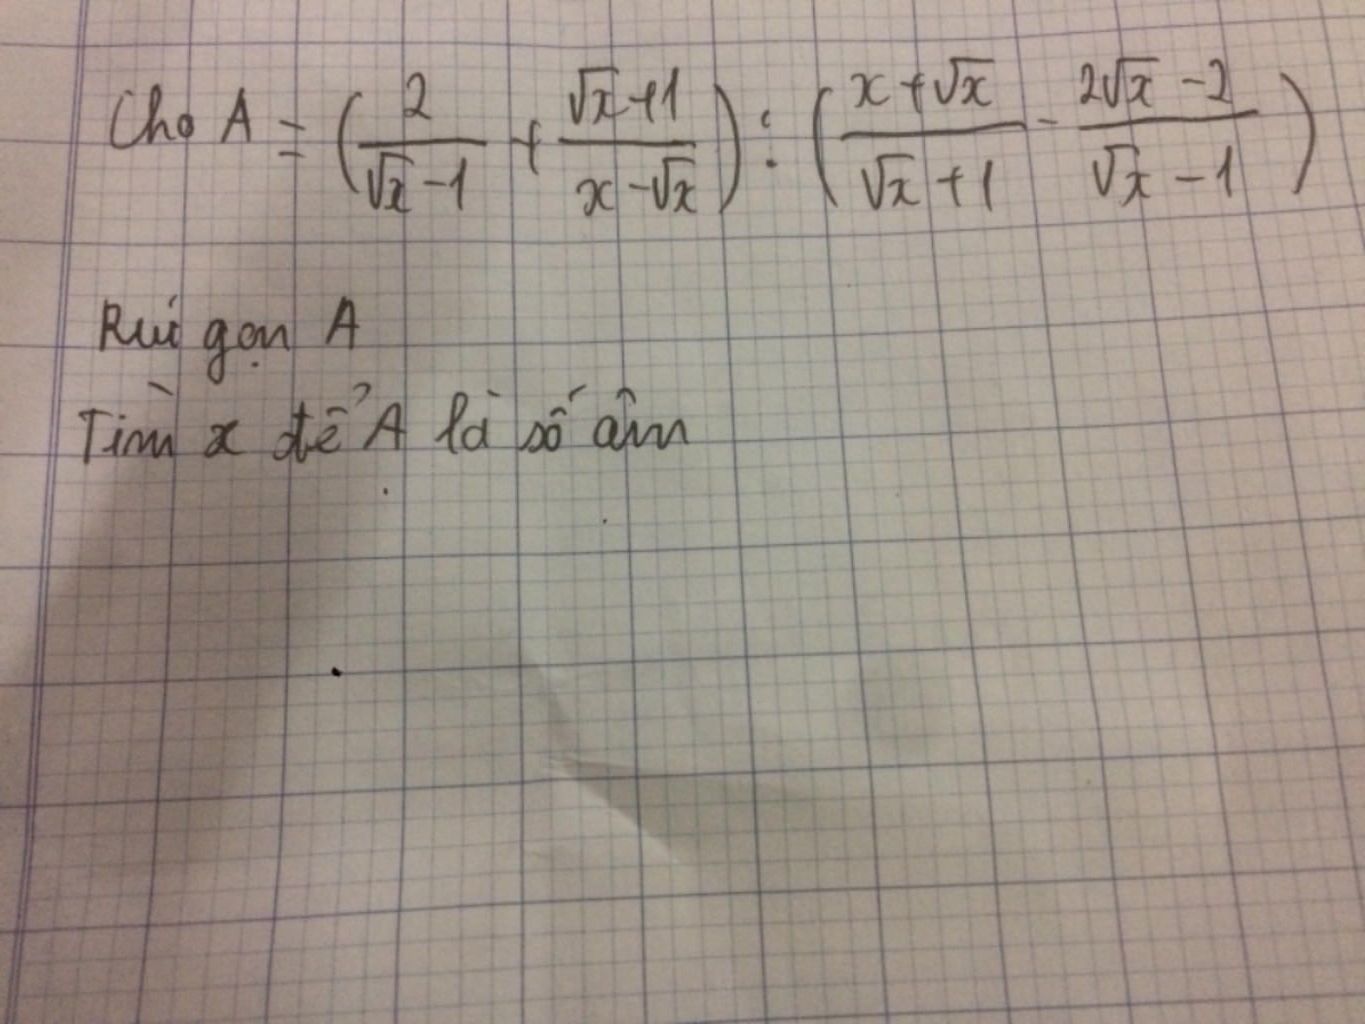 Cho A = (2/(√x - 1) + (√x + 1)/(x - √x)) : ((x + √x)/(√x + 1) - (2√x - 2)/(√x - 1))
Rút gọn A
Tìm x để A là số âm